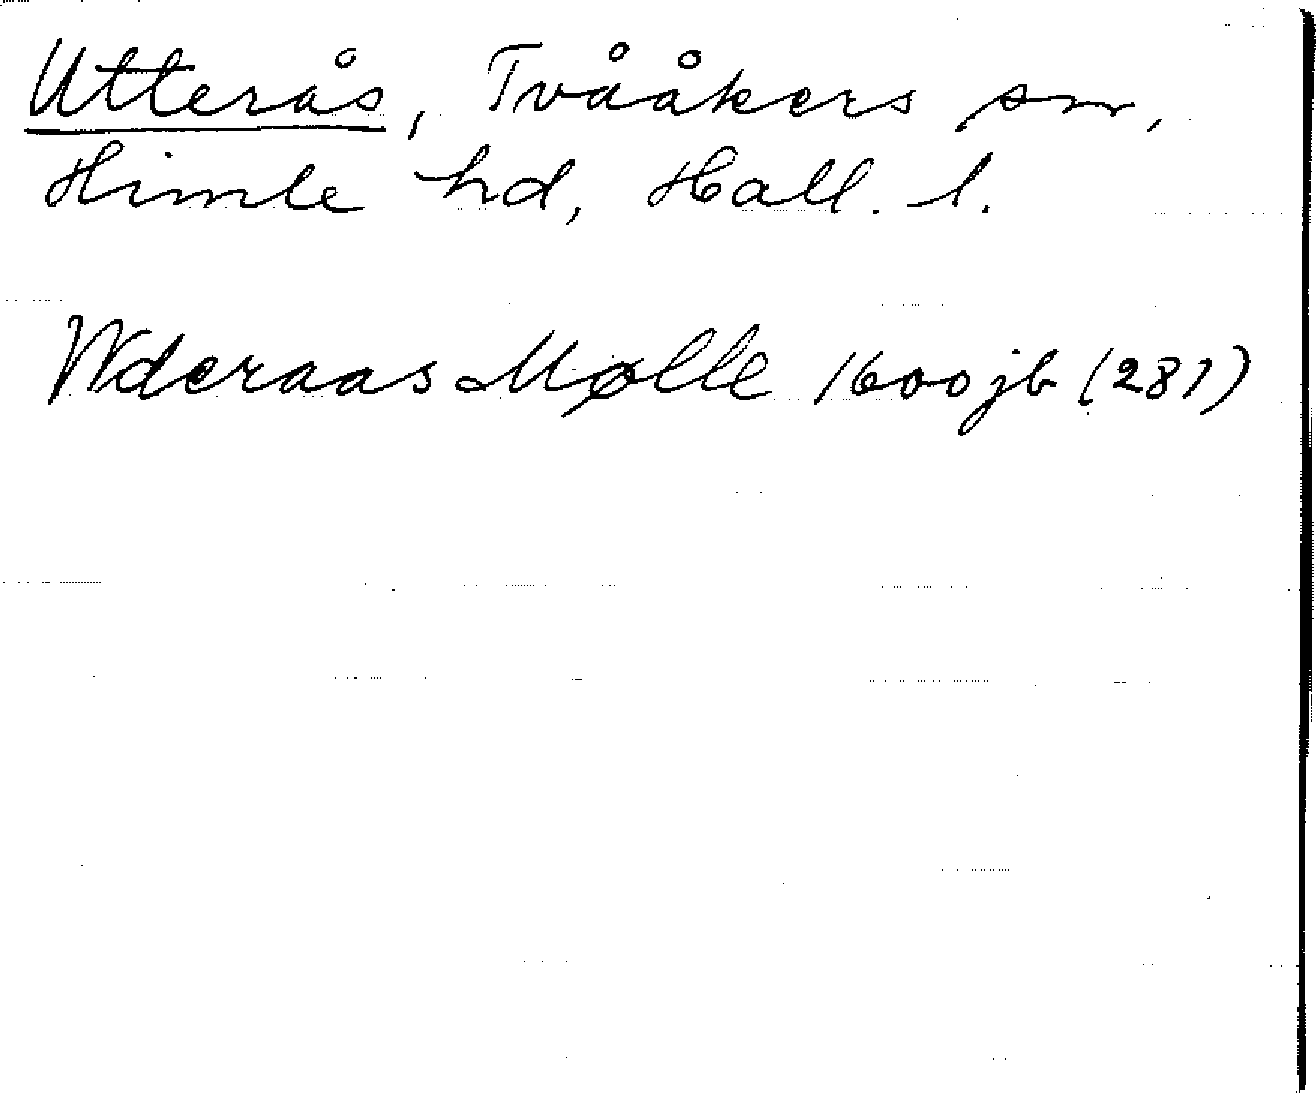 Utterås, Tvååkers sn,
Himle hd, Hall. l.
Wderaas Mølle 1600 jb (281)